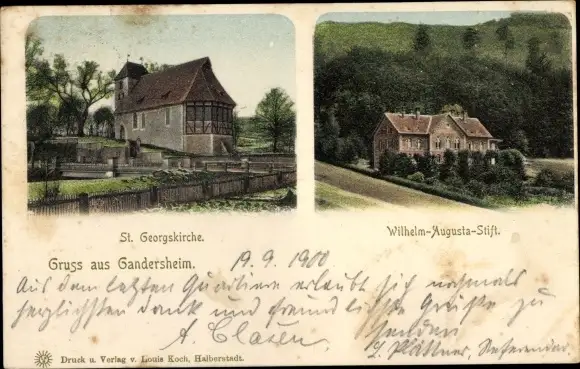 St. Georgskirche.
Wilhelm-Augusta-Stift.
Gruss aus Gandersheim.
19. 9. 1900
Aus dem letzten Quartiere erlaubt sich nochmals
herzlichsten Dank und freundlichste Grüße zu
senden
A. Clasen.
L. Plättner, Referendar
Druck u. Verlag v. Louis Koch, Halberstadt.